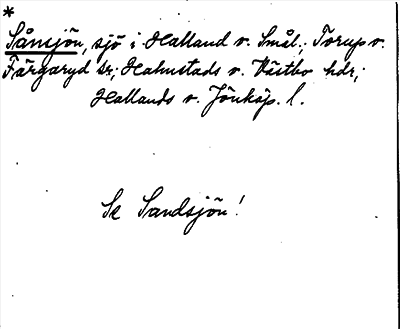 *
Sånsjön, sjö i Halland o. Smål.; Torup o.
Färgaryd sr; Halmstads o. Västbo hdr;
Hallands o. Jönköp. l.
Se Sandsjön!